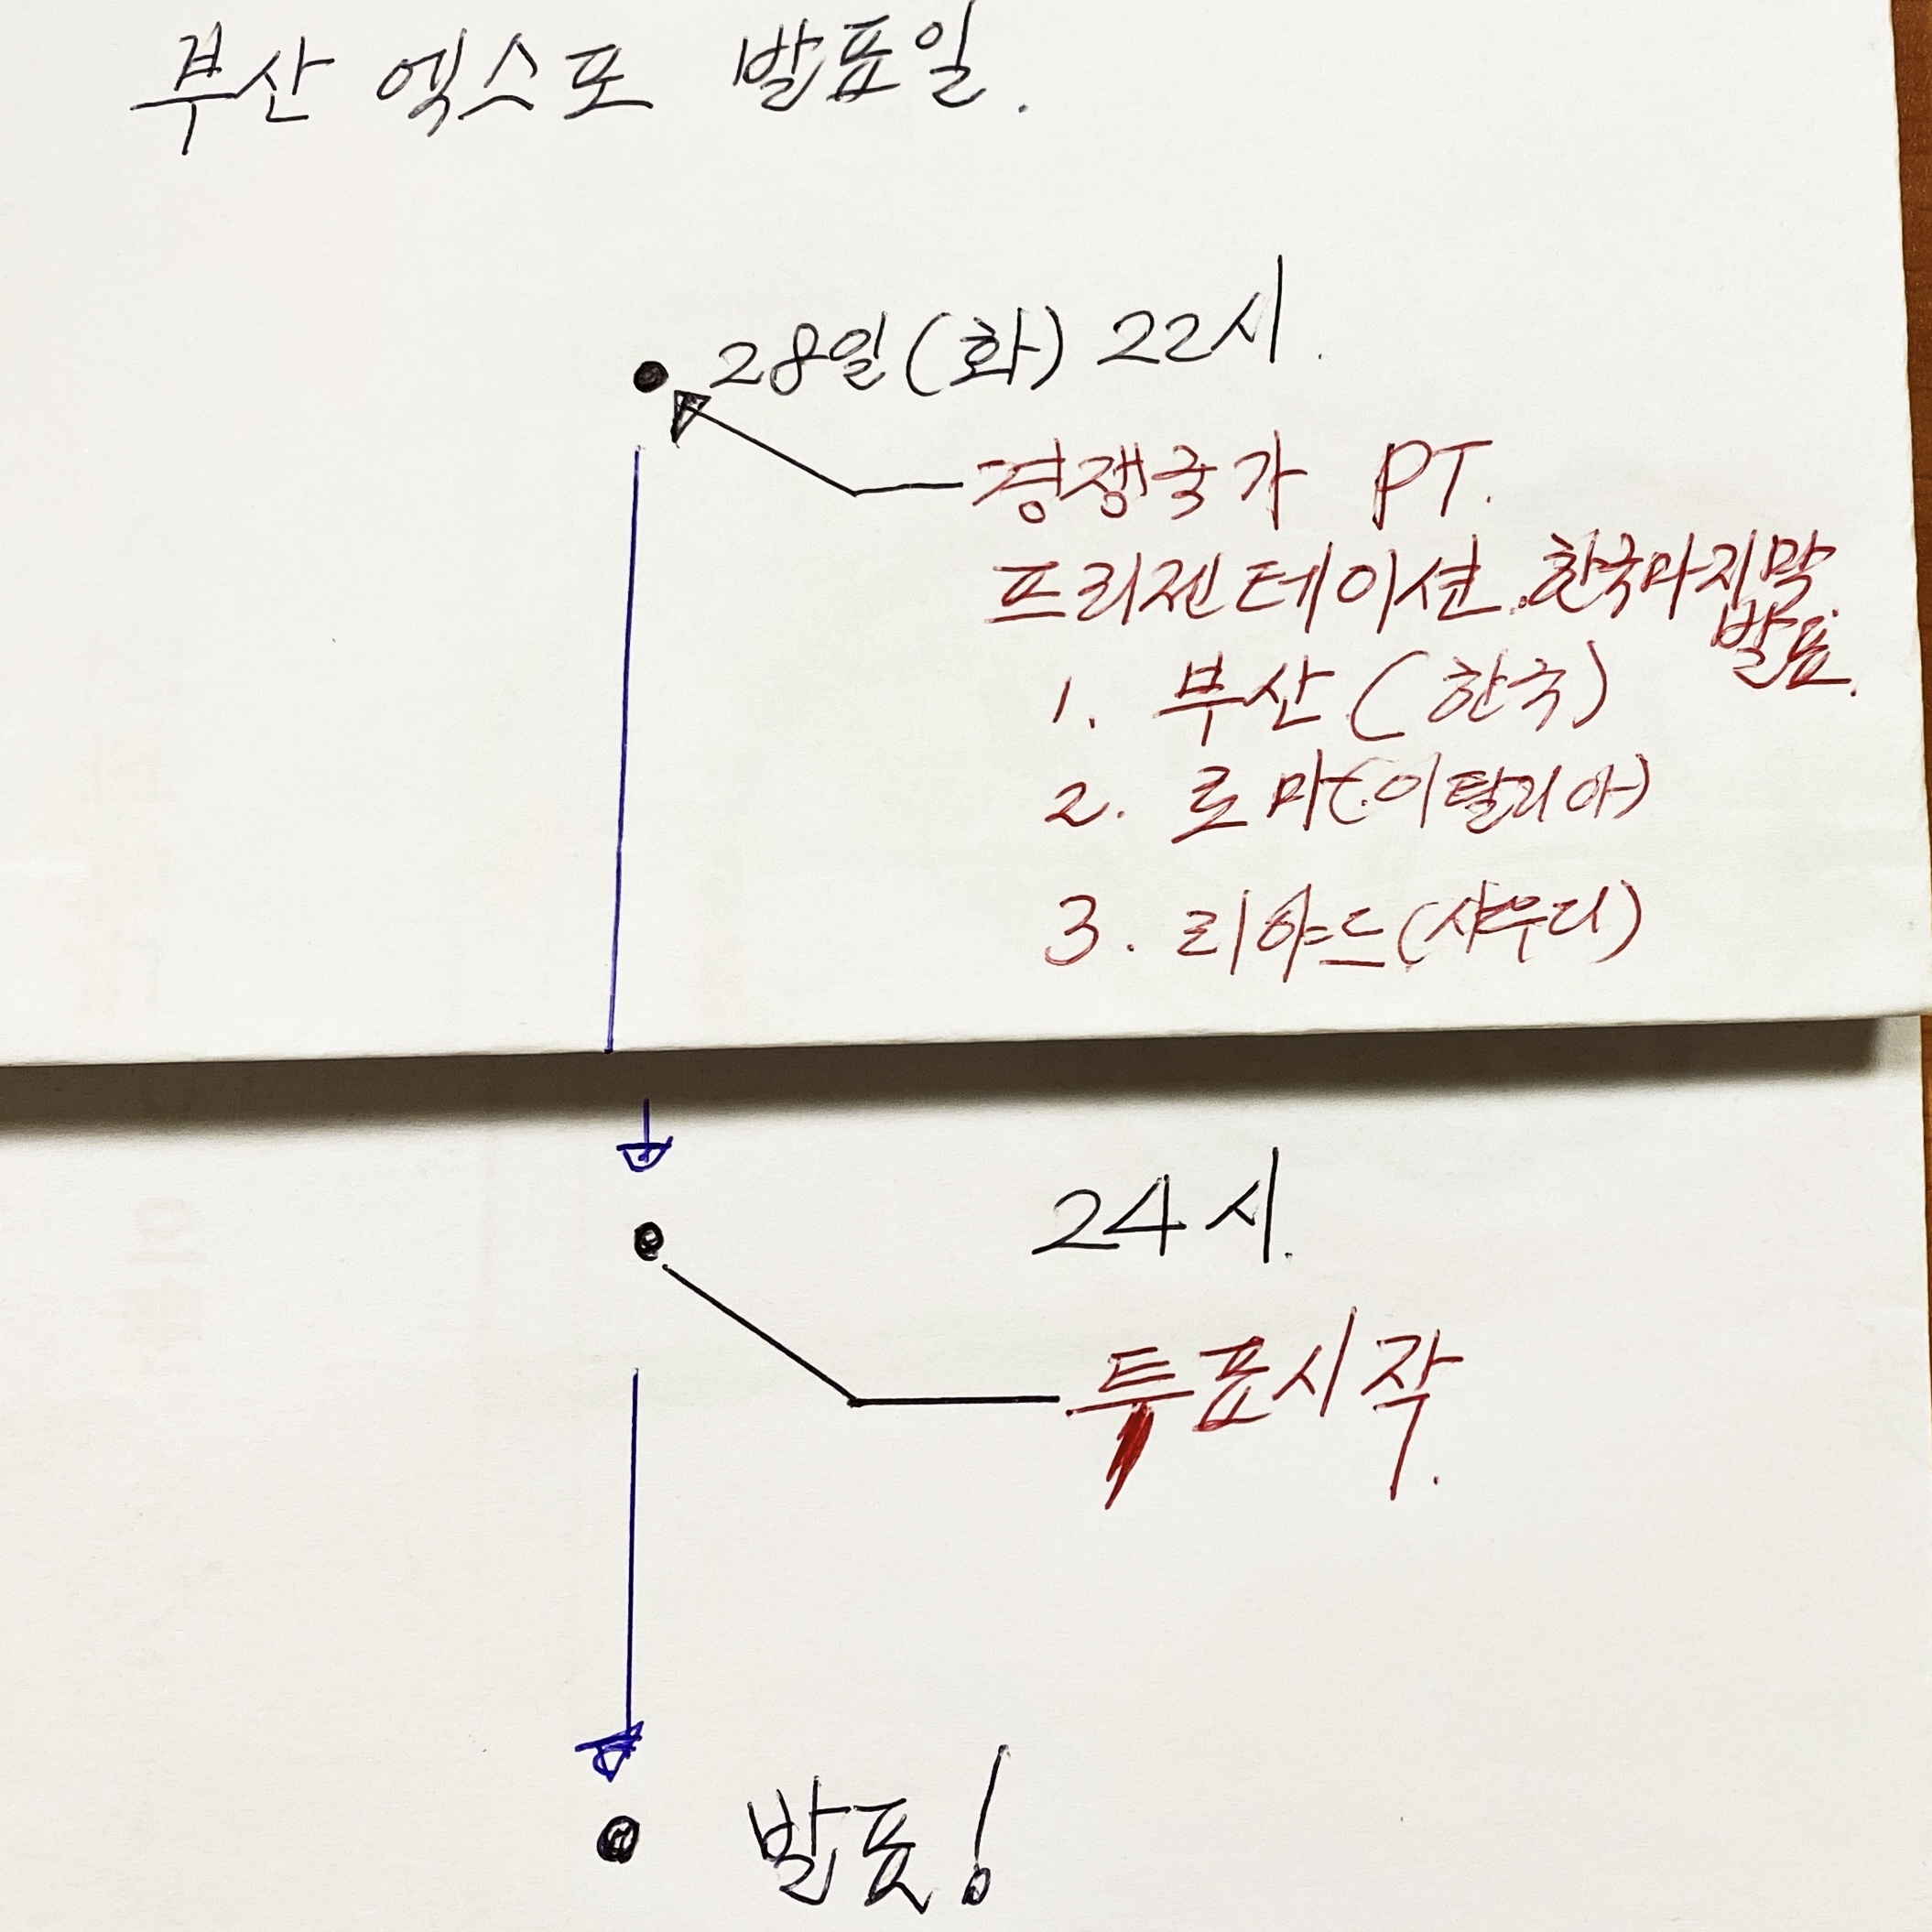 부산 엑스포 발표일.
28일(화) 22시.
경쟁국가 PT.
프리젠테이션. 한국마지막
발표.
1. 부산(한국)
2. 로마(이탈리아)
3. 리야드(사우디)
24시.
투표시작.
발표!